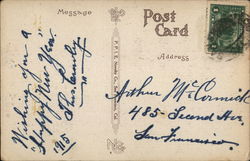 Message
Post
Card
Address
Wishing you a
"Happy New Year"
Arthur McCormick
485- Second Ave
San Francisco